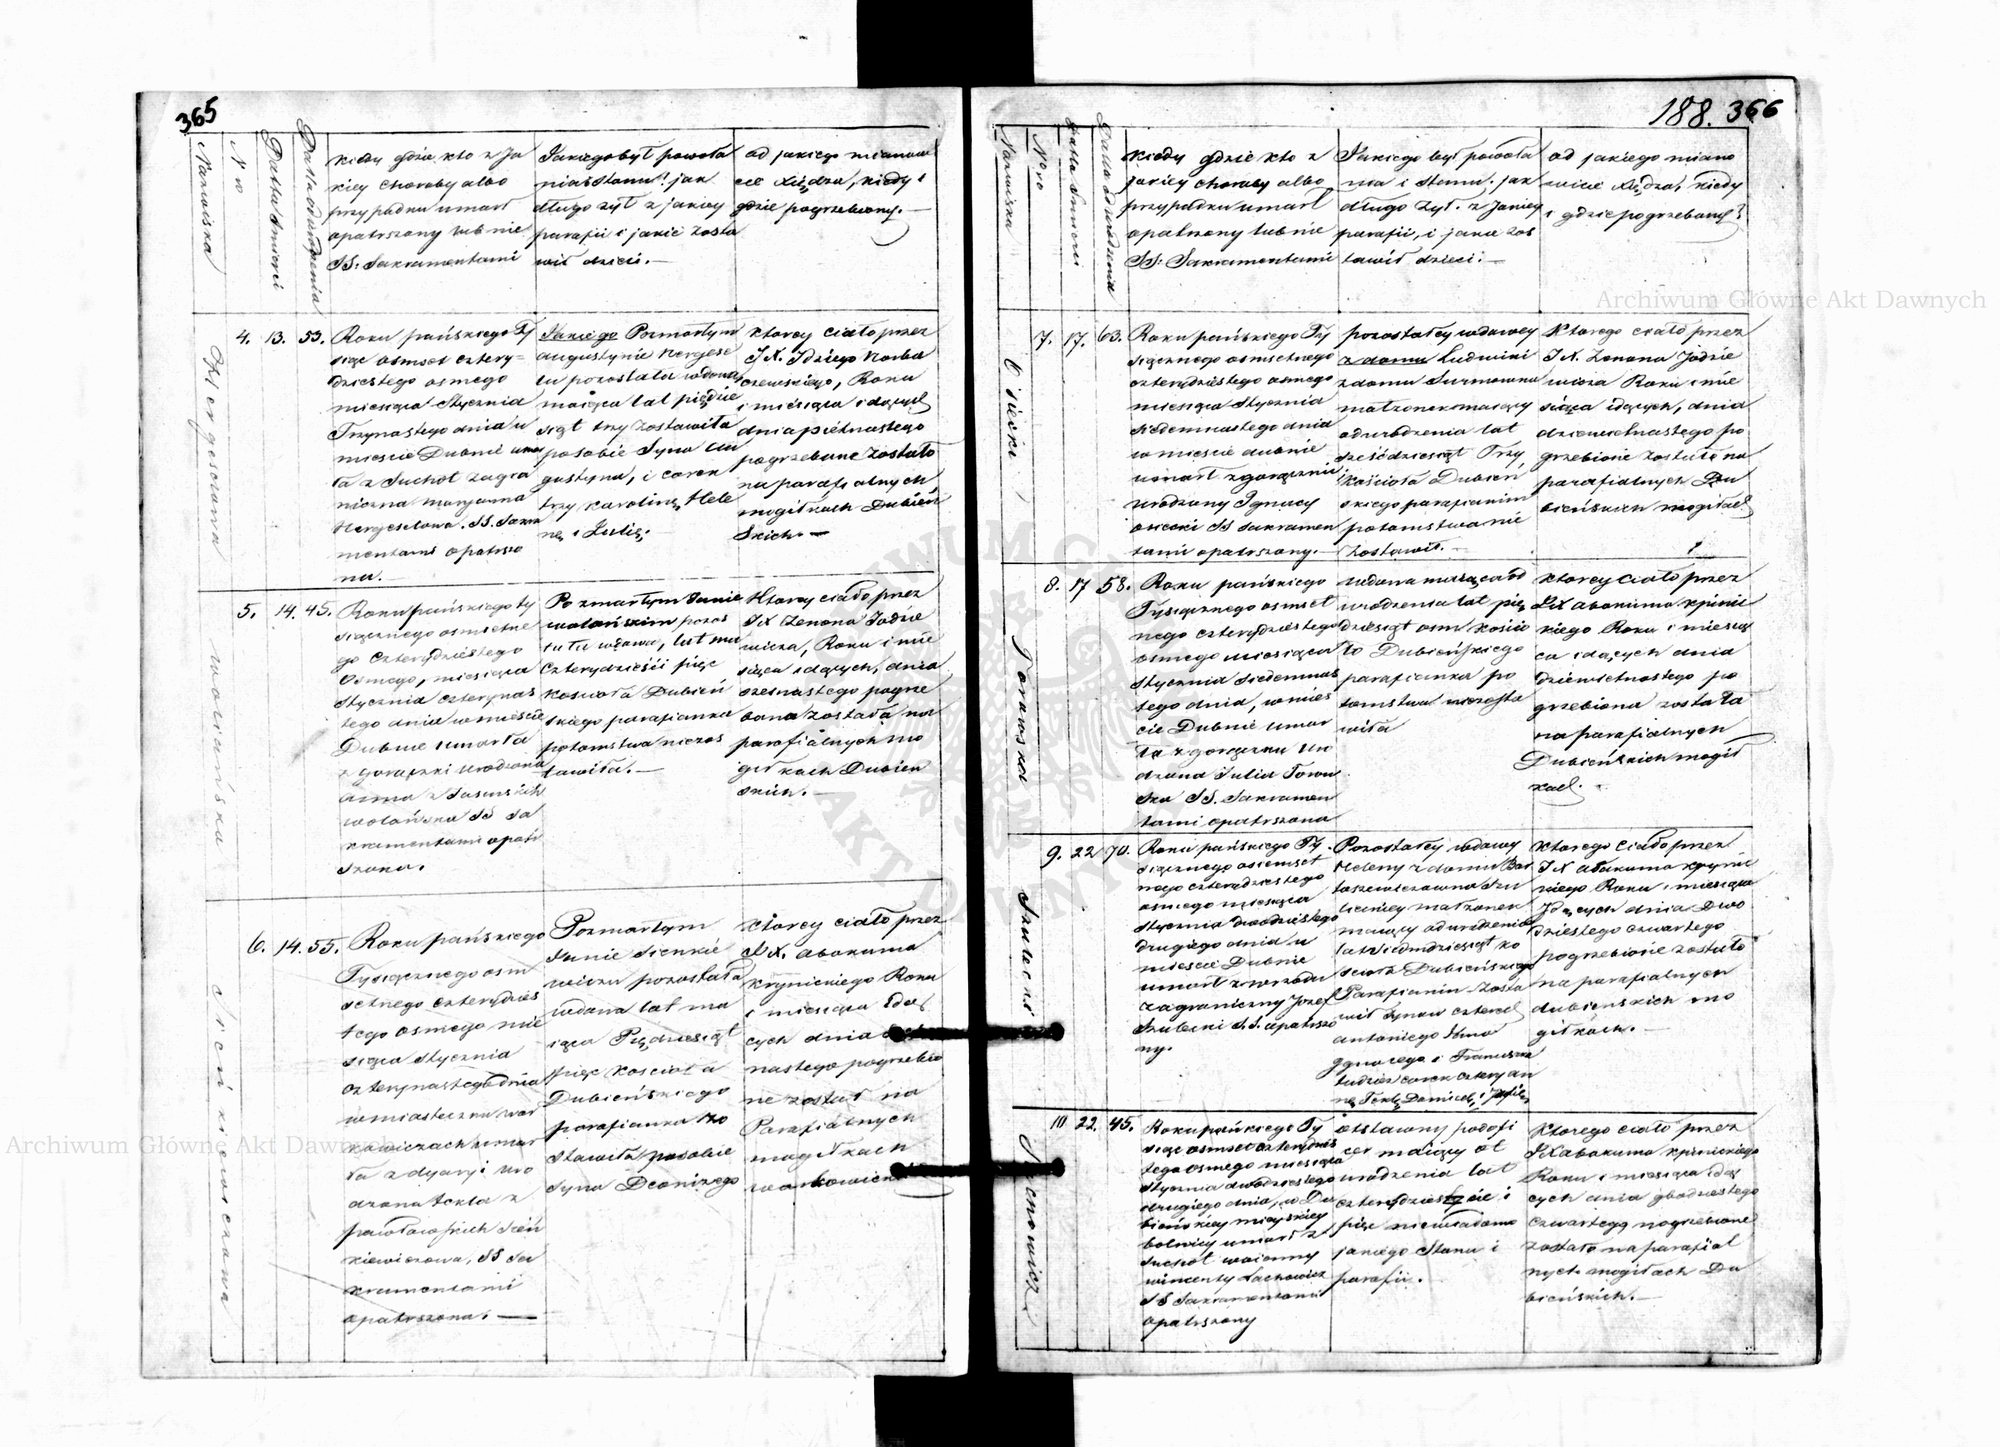 365
Nazwiska
Nro
Datta śmierci
Datta odurodzenia
kiedy gdzie kto z Ja
kiey choroby albo
przypadku umarł
opatrzony lub nie
SS: Sakramentami
Jakiego był powoła
nia i Stanu: jak
długo żył z jakiey
parafii i jakie zosta
wił dzieci. —
od jakiego mianowi
cie Xiędza, kiedy i
gdzie pogrzebiony. —
4. 13. 53.
Roku pańskiego Ty
siąc osmset cztery=
dziestego osmego
miesiąca Stycznia
Trzynastego dnia w
mieście Dubnie umar
ła z Suchot zagra
niczna maryanna
Hergeselowa. SS. Sakra
mentami opatrzo
na. —
Jakiego Pozmarłym
augustynie Hergese
lu pozostała wdowa,
maiąca lat pięćdzie
siąt trzy zostawiła
posobie Syna Au
gustyna, i corek
trzy Karolinę, Hele
nę i Julię. —
Ktorey ciało przez
J.X. Idziego Korba
czewskiego, Roku
i miesiąca idących
dnia piętnastego
pogrzebane zostało
na parafialnych
mogiłkach Dubień
Skich. —
5. 14. 45.
Roku pańskiego ty
siącznego osmsetne
go czterydziestego
Osmego, miesiąca
Stycznia czternas
tego dnia w mieście
Dubnie umarła
z gorączki urodzona
Anna z
wolańska SS Sa
kramentami opatr
szona.
Po zmarłym Janie
wolańskim pozos
tała wdowa, lat ma
czterydzieści pięc
Kościoła Dubień
skiego parafianka
potomstwa niezos
tawiła. —
Ktorey ciało przez
JX Zenona Jodzie
wicza, Roku i mie
siąca idących, dnia
szesnastego pogrze
bane zostało na
parafialnych mo
giłkach Dubien
skich. —
6. 14. 55.
Roku pańskiego
Tysiącznego osm
setnego czterydzies
tego osmego mie
siąca Stycznia
czternastego dnia
w miasteczku War
kowiczach umar
ła z dyaryi uro
dzona tekla z
Sień
kiewiczowa, SS Sa
kramentami
opatrszona. —
Pozmarłym
Janie Sienkie
wiczu pozostała
wdowa lat ma
iąca Pięćdziesiąt
pięc Kościoła
Dubieńskiego
parafianka zo
stawiła posobie
Syna Deonizego
Ktorey ciało przez
JX. Abakuma
Krynickiego Roku
i miesiąca Idą
cych dnia
nastego pogrzebio
ne zostało na
Parafialnych
mogiłkach
Warkowickich
188. 366
Nazwiska
Nro
Datta Smierci
Datta odurodzenia
kiedy gdzie kto z
jakiey choroby albo
przypadku umarł
opatrzony lub nie
SS: Sakramentami
Jakiego był powoła
nia i Stanu; jak
długo żył. z Jakiey
parafii, i jakie zos
tawił dzieci: —
od jakiego miano
wicie Xiędza, kiedy
i gdzie pogrzebany
7. 17. 63.
Osiecki
Roku pańskiego Ty
siącznego osmsetnego
czterydziestego osmego
miesiąca Stycznia
siedemnastego dnia
w mieście dubnie
umarł zgorączki
urodzony Ignacy
osiecki SS Sakramen
tami opatrszony. —
pozostałey wdowey
z domu Ludwiki
zdomu Surmowna
małzonek maiący
odurodzenia lat
sześćdziesiąt Trzy
kościoła Dubień
skiego parafianin
potomstwa nie
zostawił. —
Ktorego ciało przez
J.X. Zenona Jodzie
wicza Roku i mie
siąca idących, dnia
dziewietnastego po
grzebione zostało na
parafialnych Du
bieńskich mogiłach
8. 17 58.
Roku pańskiego
Tysiącznego osmset
nego czterydziestego
osmego miesiąca
Stycznia siedemnas
tego dnia, w mieś
cie Dubnie umar
ła z gorączki uro
dzona Julia
SS. Sakramen
tami opatrszona
wdowa maiąca od
urodzenia lat pię
dziesiąt osm Kościo
ła Dubieńskiego
parafianka po
tomstwa niezosta
wiła
Ktorey Ciało przez
JX Abakuma Krynic
kiego Roku i miesią
ca idących dnia
dziewietnastego po
grzebiona została
na parafialnych
Dubieńskich mogił
kach. —
9. 22 70.
Roku pańskiego Ty
siącznego osiemset
nego czterydziestego
osmego miesiąca
Stycznia dwudziestego
drugiego dnia w
mieście Dubnie
umarł z wrzodu
zagraniczny Jozef
Szulecki S.S. opatrszo
ny.
Pozostałey wdowy
Heleny z domu Bar
toszewiczowna Szu
leckiey małzonek
maiący odurodzenia
lat Siedmdziesiąt ko
scioła Dubieńskiego
Parafianin Zosta
wił Synow czterech
antoniego
Ignacego i Franciszka
tudzież corek cztery an
nę Teklę Domicelę i Jozefę
Ktorego Ciało przez
JX abakuma Krynic
kiego Roku i miesiąca
Idących dnia Dwo
dziestego czwartego
pogrzebione zostało
na parafialnych
dubienskich mo
giłkach. —
10 22. 45.
Roku pańskiego Ty
siąc osmset czterydzies
tego osmego miesiąca
Stycznia dwudziestego
drugiego dnia, w Du
bieńskiey mieyskiey
bolnicy umarł z
Suchot woienny
wincenty Lachowicz
SS Sakramentami
opatrszony
otstawny podofi
cer maiący ot
urodzenia lat
czterydzieście i
pięc niewiadomo
jakiego Stanu i
parafii.
Ktorego ciało przez
JX abakuma Krynickiego
Roku i miesiąca idą
cych dnia dwodziestego
czwartego pogrzebione
zostało na parafial
nych mogiłach Du
bieńskich. —
Archiwum Główne Akt Dawnych
Archiwum Główne Akt Dawnych